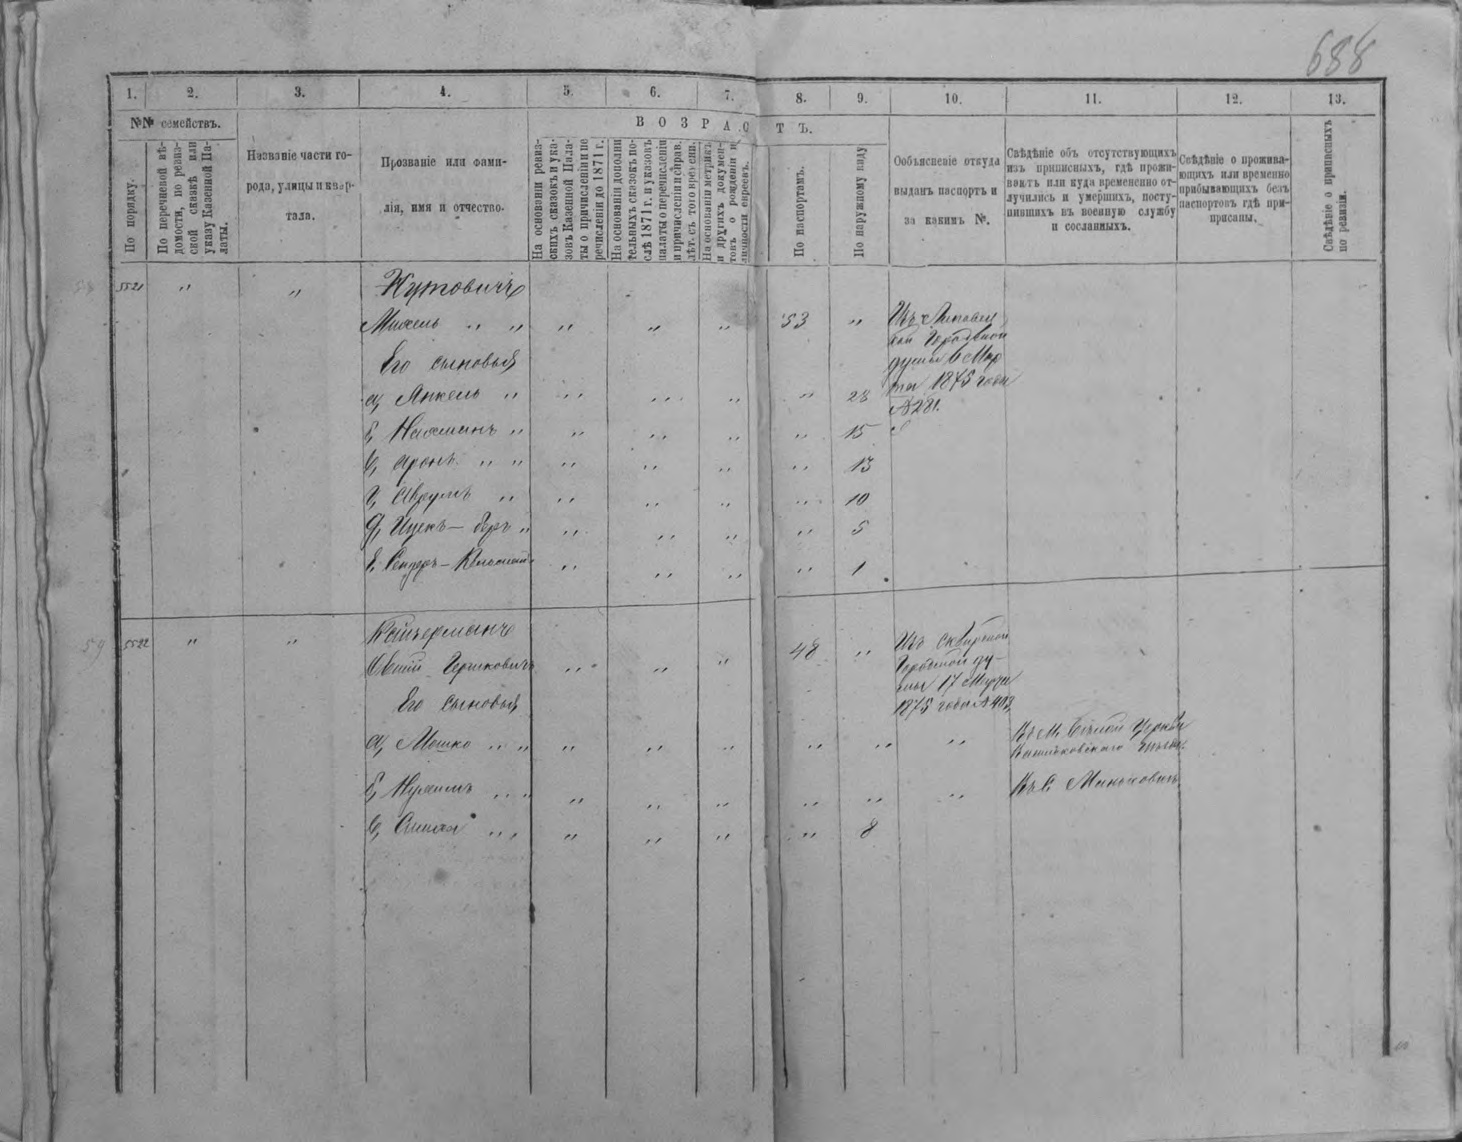 688
1. 2. 3. 4. 5. 6. 7. 8. 9. 10. 11. 12. 13.
№№ семействъ.
По порядку.
По перечневой вѣ-
домости, по ревиз-
ской сказкѣ или
указу Казенной Па-
латы.
Названіе части го-
рода, улицы и квар-
тала.
Прозваніе или фами-
лія, имя и отчество.
ВОЗРАСТЪ.
На основаніи ревиз-
скихъ сказокъ и ука-
зовъ Казенной Пала-
ты о причисленіи и пе
речисленіи до 1871 г.
На основаніи дополни
тельныхъ сказокъ по-
слѣ 1871 г. и указовъ
палаты о перечисленіи
и причисленіи исправ.
лѣт. съ того времени.
На основаніи метрикъ
и другихъ докумен-
товъ о рожденіи и
личности евреевъ.
По паспортамъ.
По наружному виду
Ообъясненіе откуда
выданъ паспортъ и
за какимъ №.
Свѣдѣніе объ отсутствующихъ
изъ приписныхъ, гдѣ прожи-
ваютъ или куда временно от-
лучились и умершихъ, посту-
пившихъ въ военную службу
и сосланныхъ.
Свѣдѣніе о прожива-
ющихъ или временно
прибывающихъ безъ
паспортовъ гдѣ при-
писаны.
Свѣдѣніе о приписныхъ
по ревизіи.
5521 " "
Михель " " " " " 53 "
Изъ Липовец
кой Городской
думы 6 Мар
та 1875 года
№ 281.
Его сыновья
а, Янкель " " " " " 28
б, Нахманъ " " " " " 15
в, Аронъ " " " " " " 13
г, Аврумъ " " " " " 10
д, Ицекъ-Беръ " " " " " 5
" " " " 1
59 5522 " "
" " " 48 "
Изъ Сквирской
Городской ду-
мы 17 Марта
1875 года №
Его сыновья
а, Мошко " " " " " " " "
Въ М. Бѣлой Церкви
Васильковскаго уѣзда.
б, " " " " " " " "
Въ с.
в, " " " " " " 8